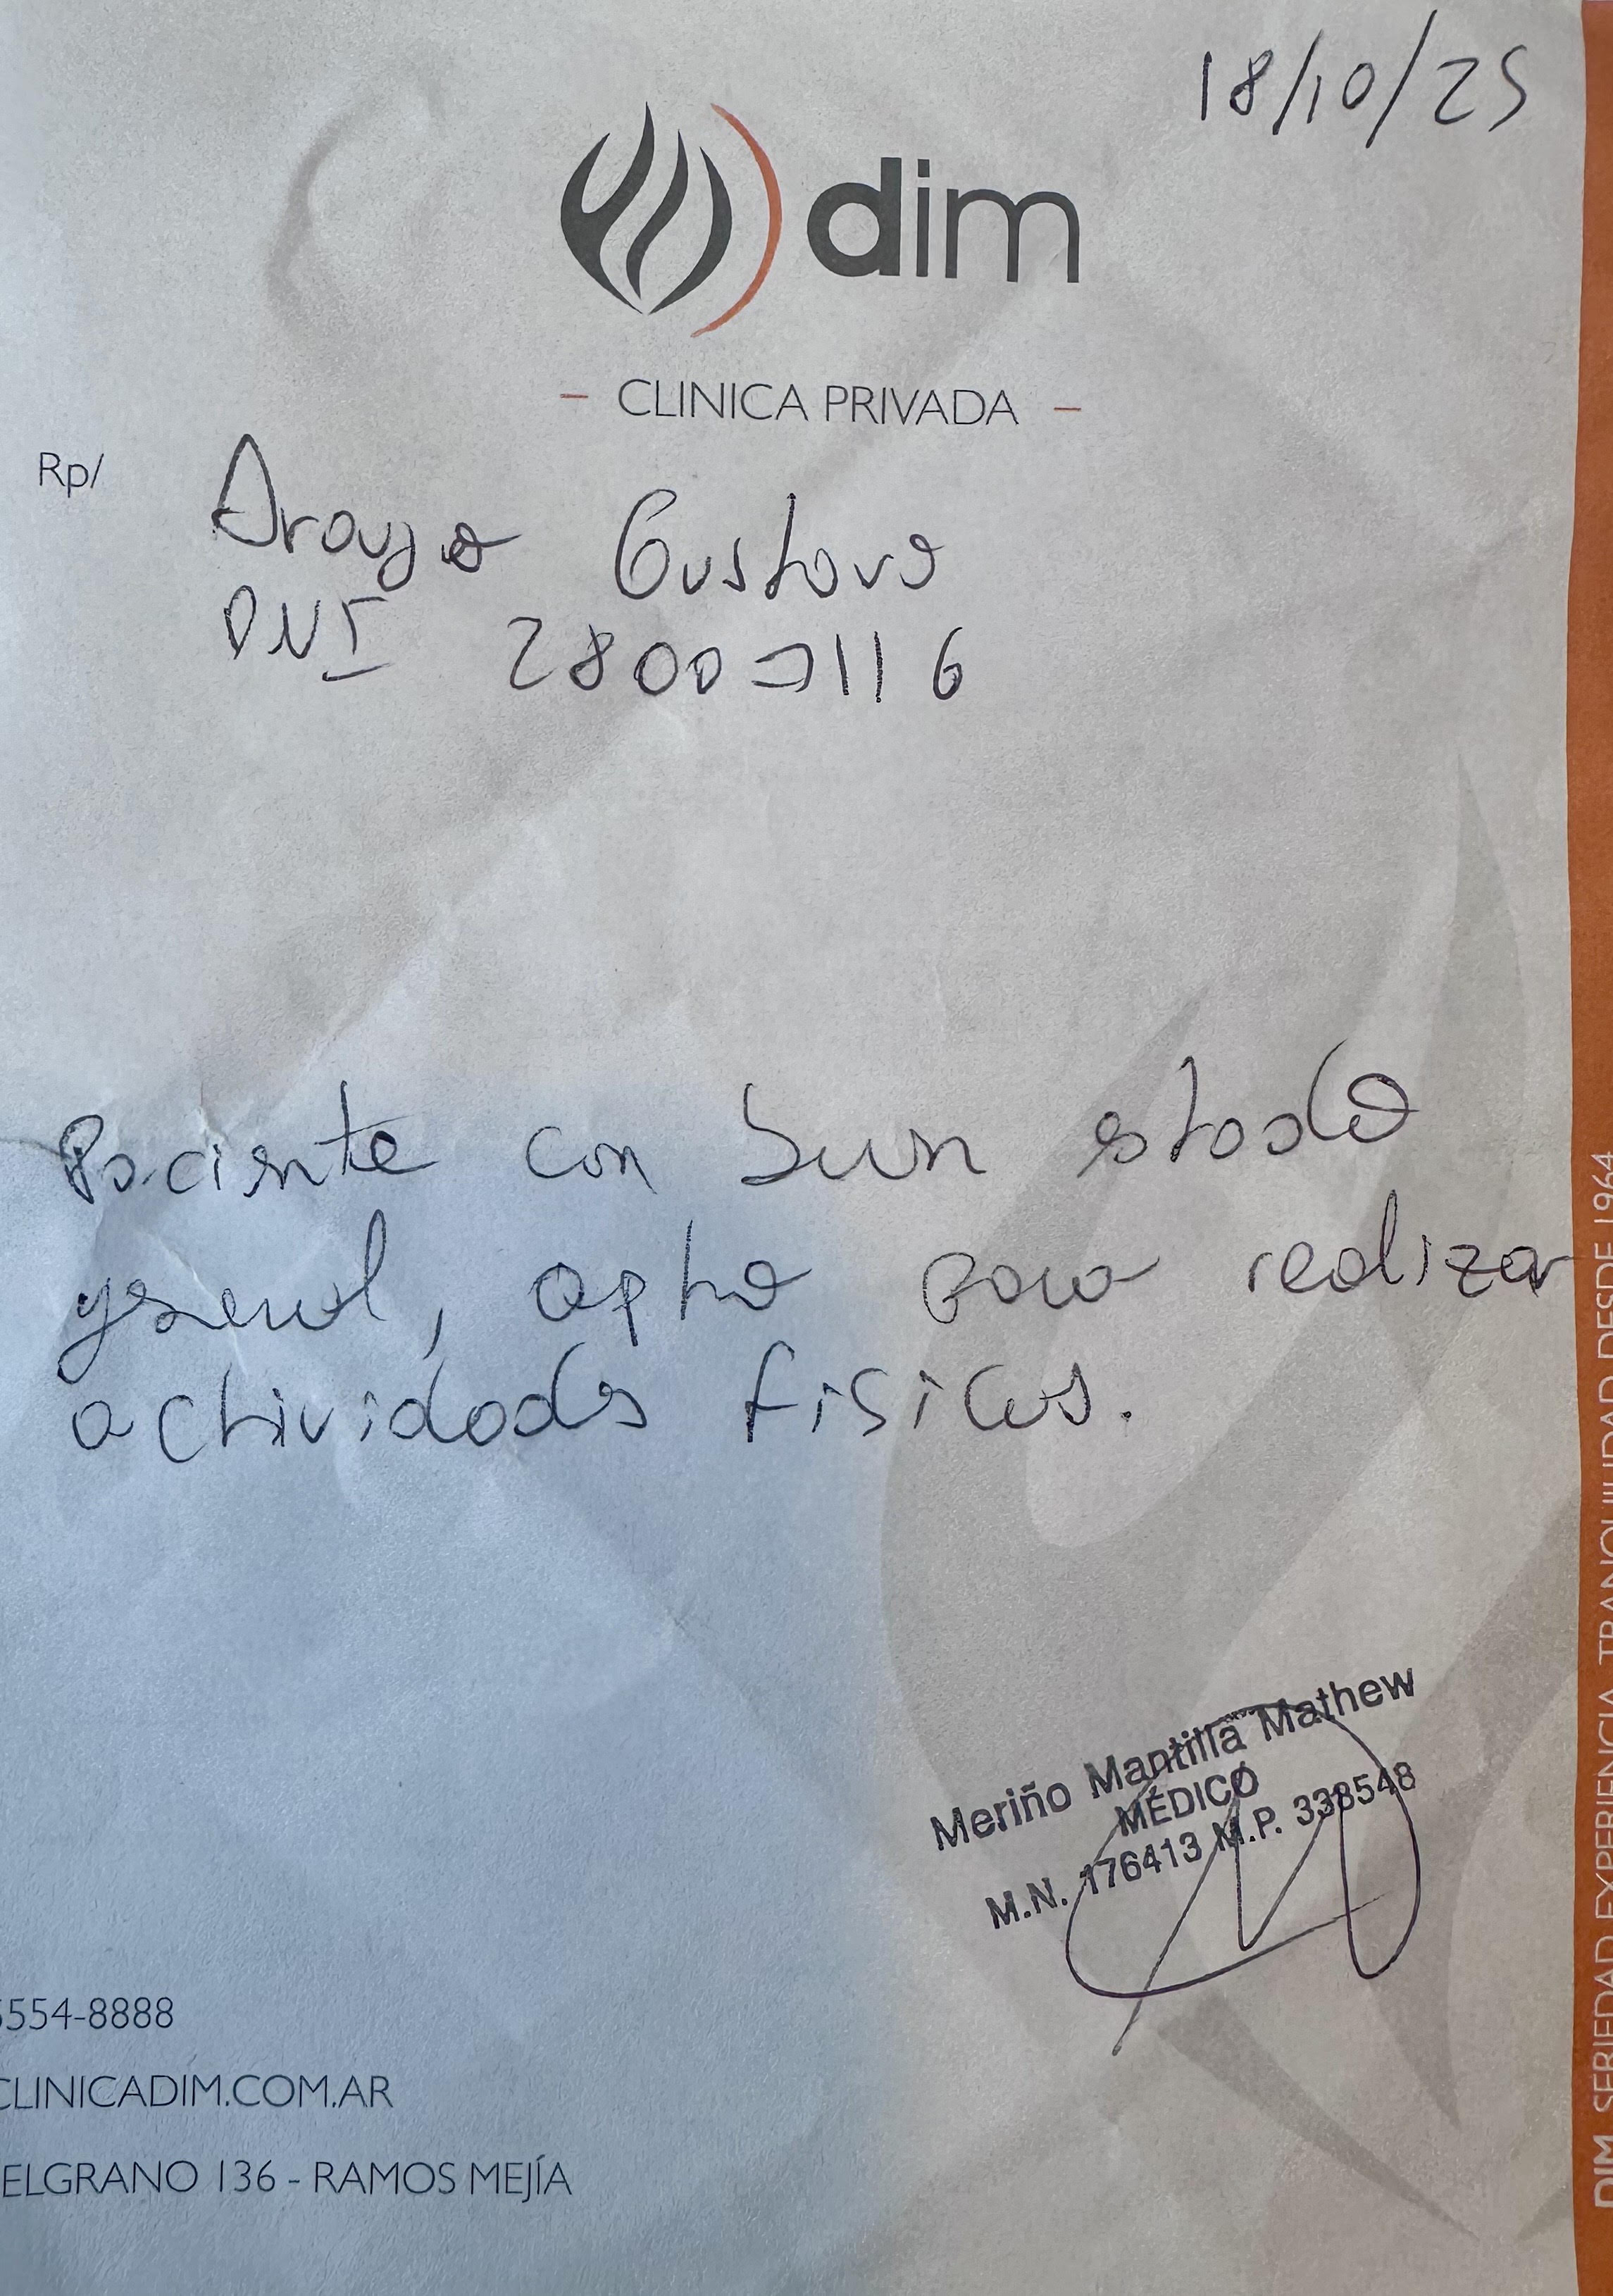 18/10/25
dim
- CLINICA PRIVADA -
Rp/
Araujo Gustavo
DNI 28007116
Paciente con buen estado
general, apto para realizar
actividades fisicas.
Meriño Mantilla Mathew
MÉDICO
M.N. 176413 M.P. 338548
5554-8888
CLINICADIM.COM.AR
ELGRANO 136 - RAMOS MEJÍA
DIM. SERIEDAD, EXPERIENCIA, TRANQUILIDAD DESDE 1964